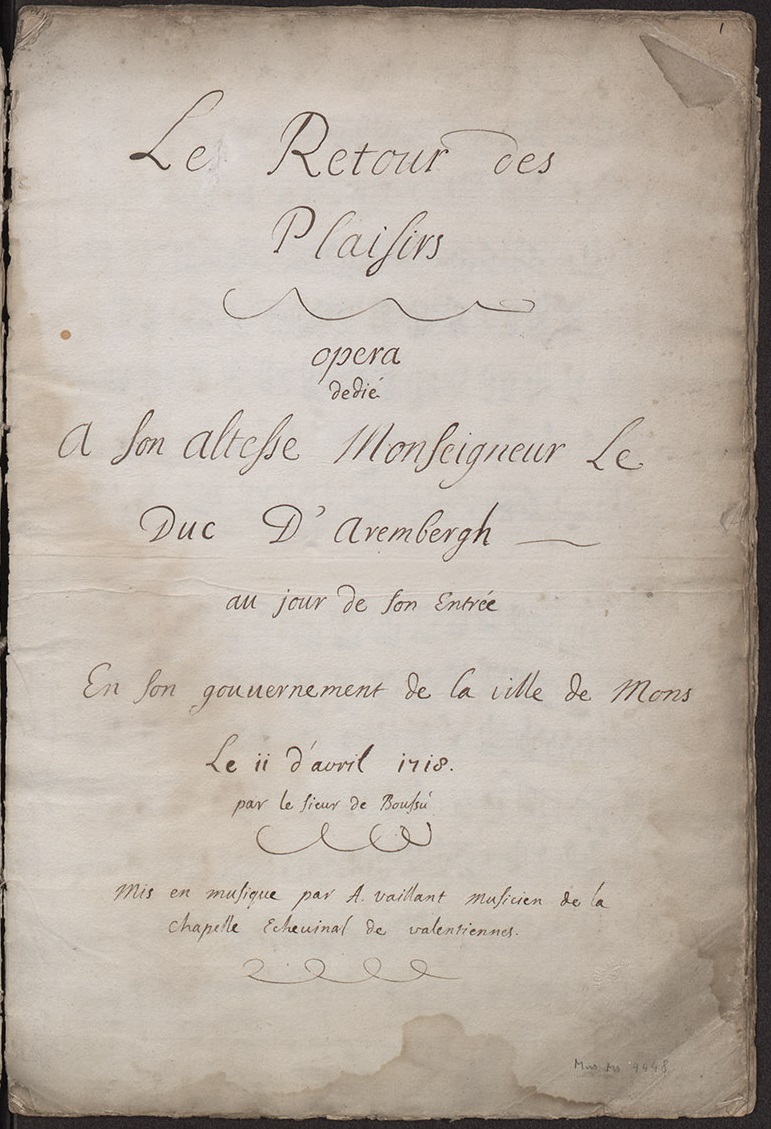 1
Le Retour des
Plaisirs
opera
dedié
A son altesse Monseigneur Le
Duc D' Arembergh
au jour de son Entrée
En son gouuernement de la ville de Mons
Le ii d'avril 1718.
par le sieur de Boussú
Mis en musique par A. vaillant musicien de la
chapelle Echeuinal de valentiennes.
Mus. Ms 4448